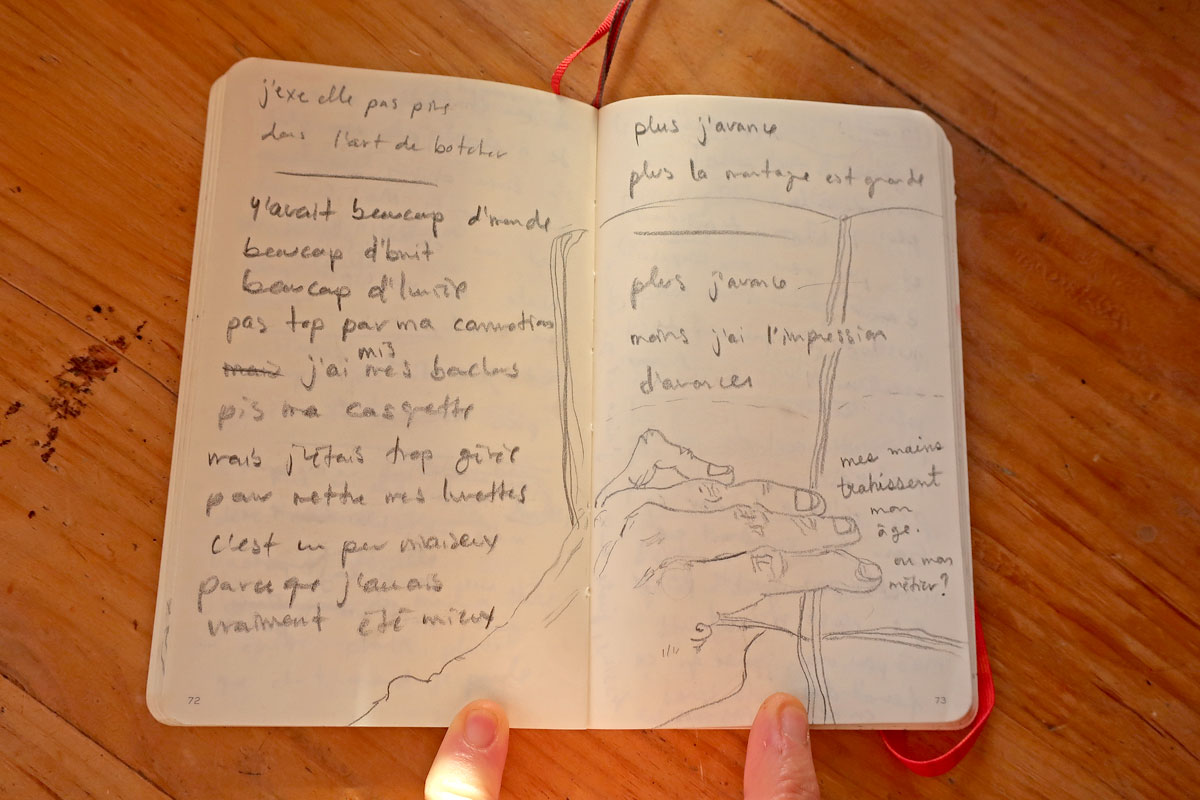 j'excelle pas pire
dans l'art de botcher
y'avait beaucoup d'monde
beaucoup d'bruit
beaucoup d'lumière
pas top par ma
mais j'ai mes
mis
pis ma casquette
mais j'étais trop gênée
pour mettre mes lunettes
c'est un peu niaiseux
parce que j'aurais
vraiment été mieux
72
plus j'avance
plus la montagne est grande
plus j'avance
moins j'ai l'impression
d'avancer
mes mains
trahissent
mon
âge.
ou mon
métier?
73